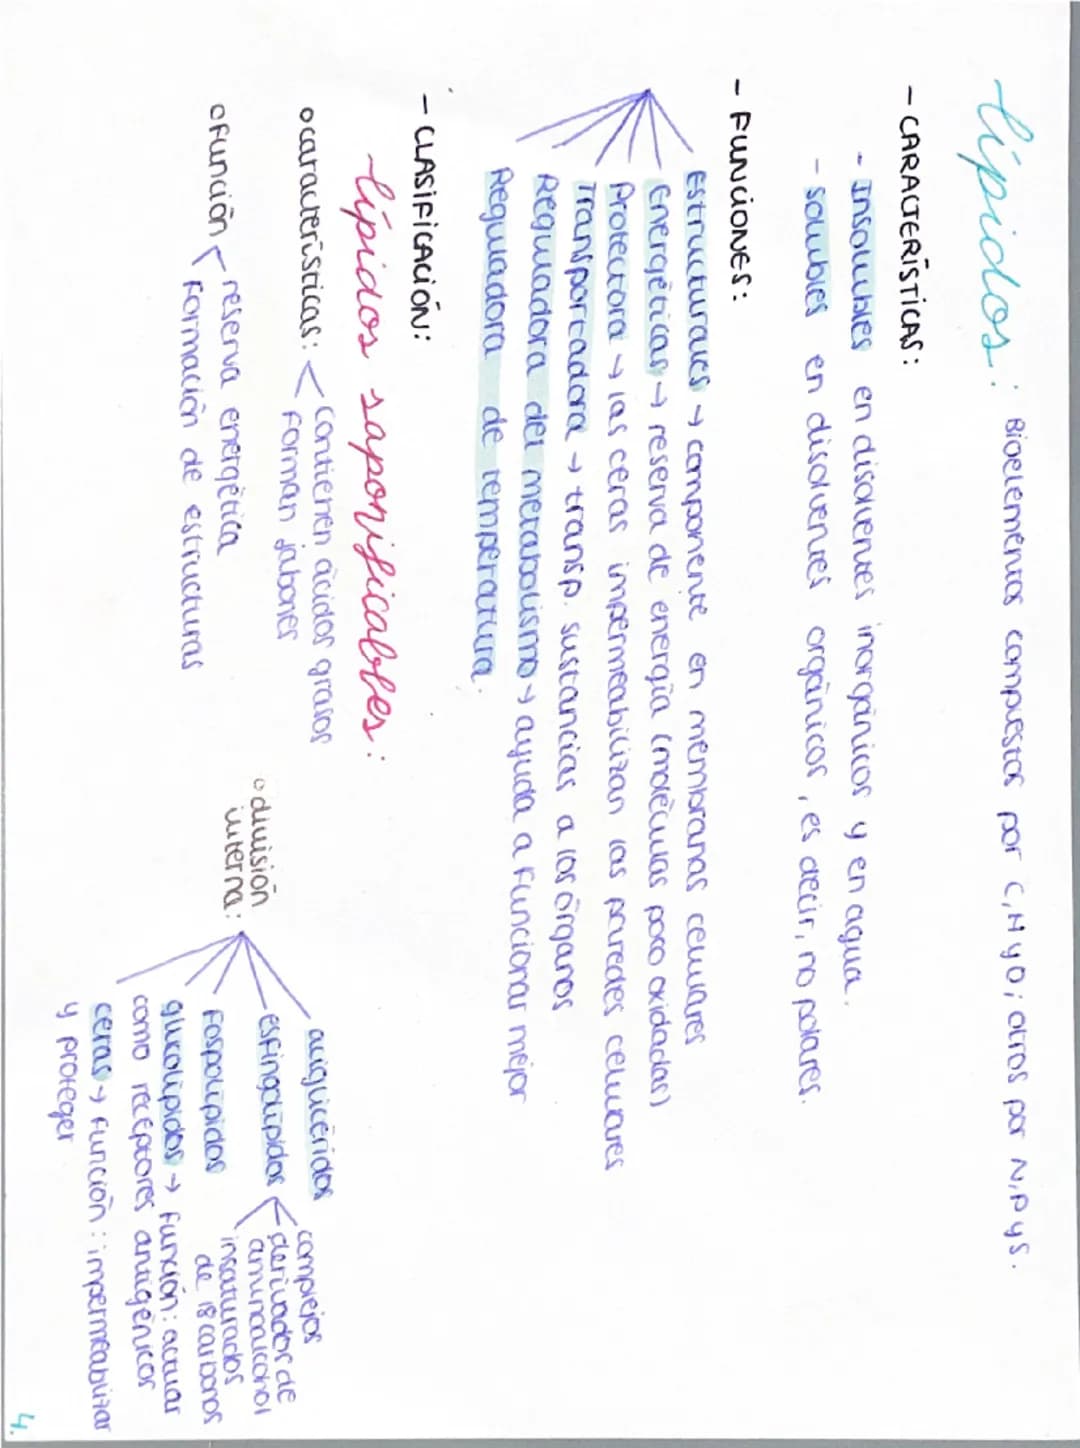 lípidos: Bioelementos compuestos por C, H y O; otros por N, P y S.
- CARACTERÍSTICAS:
- Insolubles en disolventes inorgánicos y en agua.
- solubles en disolventes orgánicos, es decir, no polares.
- FUNCIONES:
Estructurales → componente en membranas celulares
Energéticas → reserva de energía (moléculas poco oxidadas)
Protectora → las ceras impermeabilizan las paredes celulares
Transportadora → transp. sustancias a los órganos
Reguladora del metabolismo → ayuda a funcionar mejor
Reguladora de temperatura.
- CLASIFICACIÓN:
lípidos saponificables:
o características: < contienen ácidos grasos
forman jabones
o función < reserva energética
formación de estructuras
o división
interna:
acilglicéridos
esfingolípidos < complejos
derivados de
aminoalcohol
insaturados
de 18 carbonos
fospolípidos
glucolípidos → función: actuar
como receptores antigénicos
ceras → función: impermeabilizar
y proteger
4.